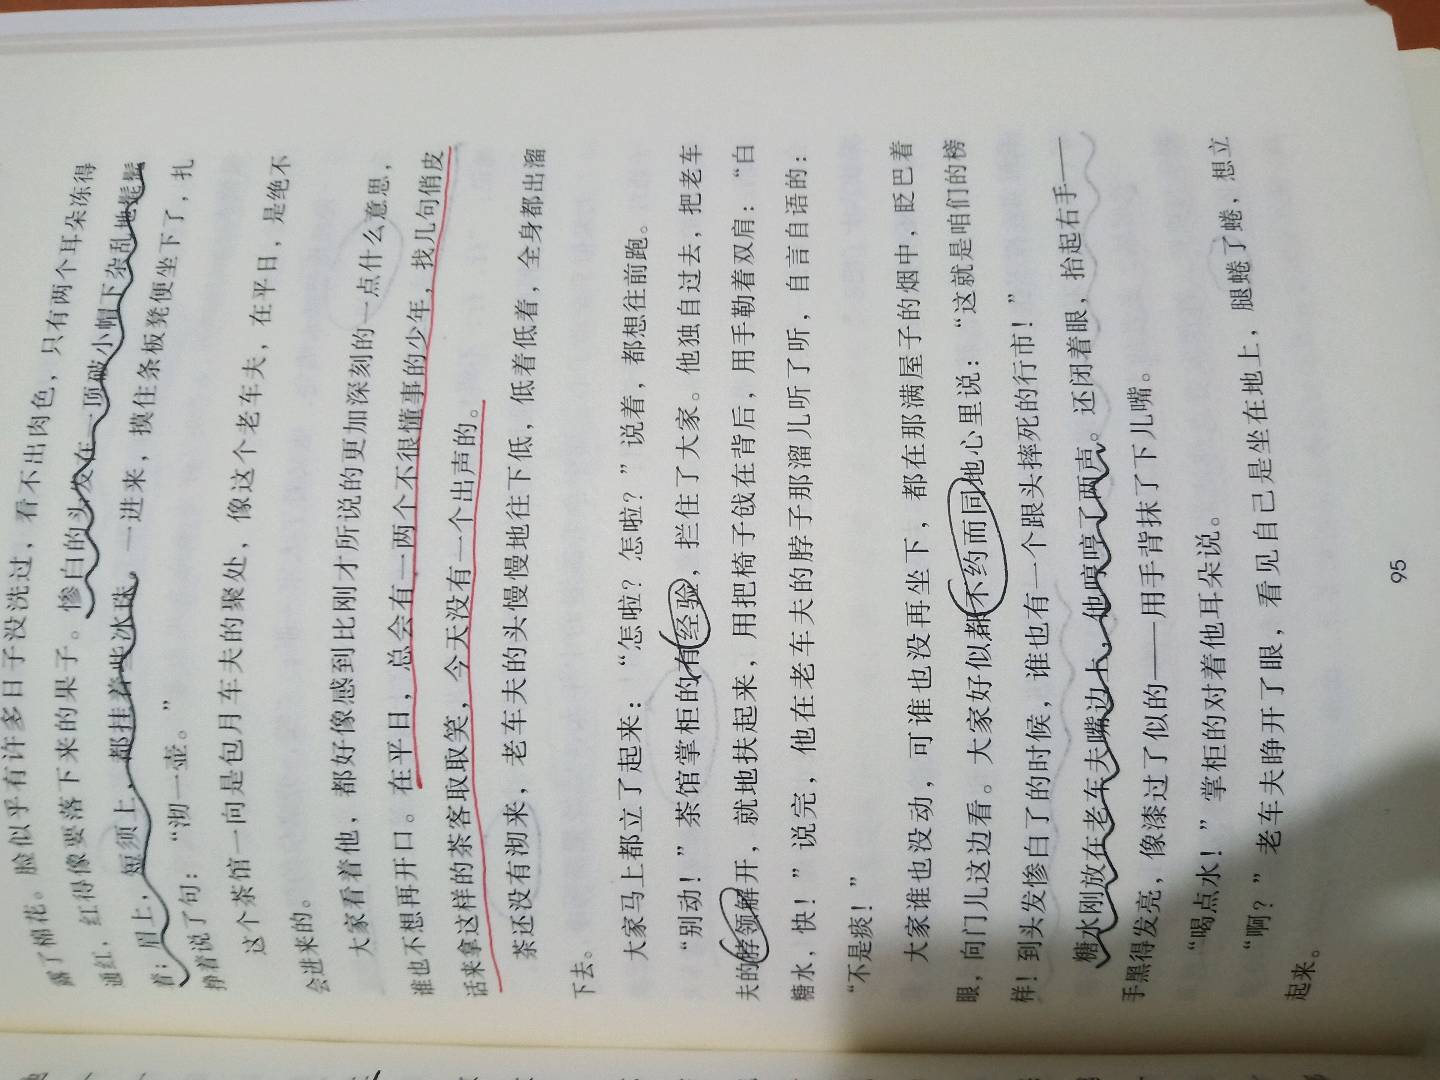 露了棉花。脸似乎有许多日子没洗过，看不出肉色，只有两个耳朵冻得
通红，红得像要落下来的果子。惨白的头发在一顶破小帽下杂乱地髭髭
着；眉上，短须上，都挂着些冰珠。一进来，摸住条板凳便坐下了，扎
挣着说了句：“沏一壶。”
这个茶馆一向是包月车夫的聚处，像这个老车夫，在平日，是绝不
会进来的。
大家看着他，都好像感到比刚才所说的更加深刻的一点什么意思，
谁也不想再开口。在平日，总会有一两个不很懂事的少年，找几句俏皮
话来拿这样的茶客取取笑，今天没有一个出声的。
茶还没有沏来，老车夫的头慢慢地往下低，低着低着，全身都出溜
下去。
大家马上都立了起来：“怎啦？怎啦？”说着，都想往前跑。
“别动！”茶馆掌柜的有经验，拦住了大家。他独自过去，把老车
夫的脖领解开，就地扶起来，用把椅子戗在背后，用手勒着双肩：“白
糖水，快！”说完，他在老车夫的脖子那溜儿听了听，自言自语的：
“不是痰！”
大家谁也没动，可谁也没再坐下，都在那满屋子的烟中，眨巴着
眼，向门儿这边看。大家好似都不约而同地心里说：“这就是咱们的榜
样！到头发惨白了的时候，谁也有一个跟头摔死的行市！”
糖水刚放在老车夫嘴边上，他哼哼了两声。还闭着眼，抬起右手——
手黑得发亮，像漆过了似的——用手背抹了下儿嘴。
“喝点水！”掌柜的对着他耳朵说。
“啊？”老车夫睁开了眼，看见自己是坐在地上，腿蜷了蜷，想立
起来。
95